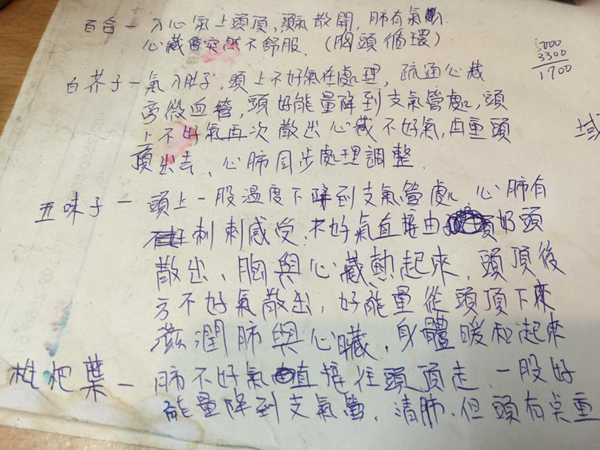 百合－入心氣上頭頂，頭氣散開，肺有氣動.
心藏會突然不舒服.（胸頭循環）
5000
3300
1700
白芥子－氣入肚子，頭上不好氣在處理，疏通心藏
旁微血管，頭好能量降到支氣管處，頭
上不好氣再次散出，心藏不好氣，由重頭
頂出去，心肺同步處理調整.
域
五味子－頭上一股溫度下降到支氣管處，心肺有
刺刺感受，不好氣直接由頭
散出，胸與心藏熱起來，頭頂後
方不好氣散出，好能量從頭頂下來
滋潤肺與心臟，身體暖和起來
枇杷葉－肺不好氣直接往頭頂走，一股好
能量降到支氣管，清肺，但頭有點重